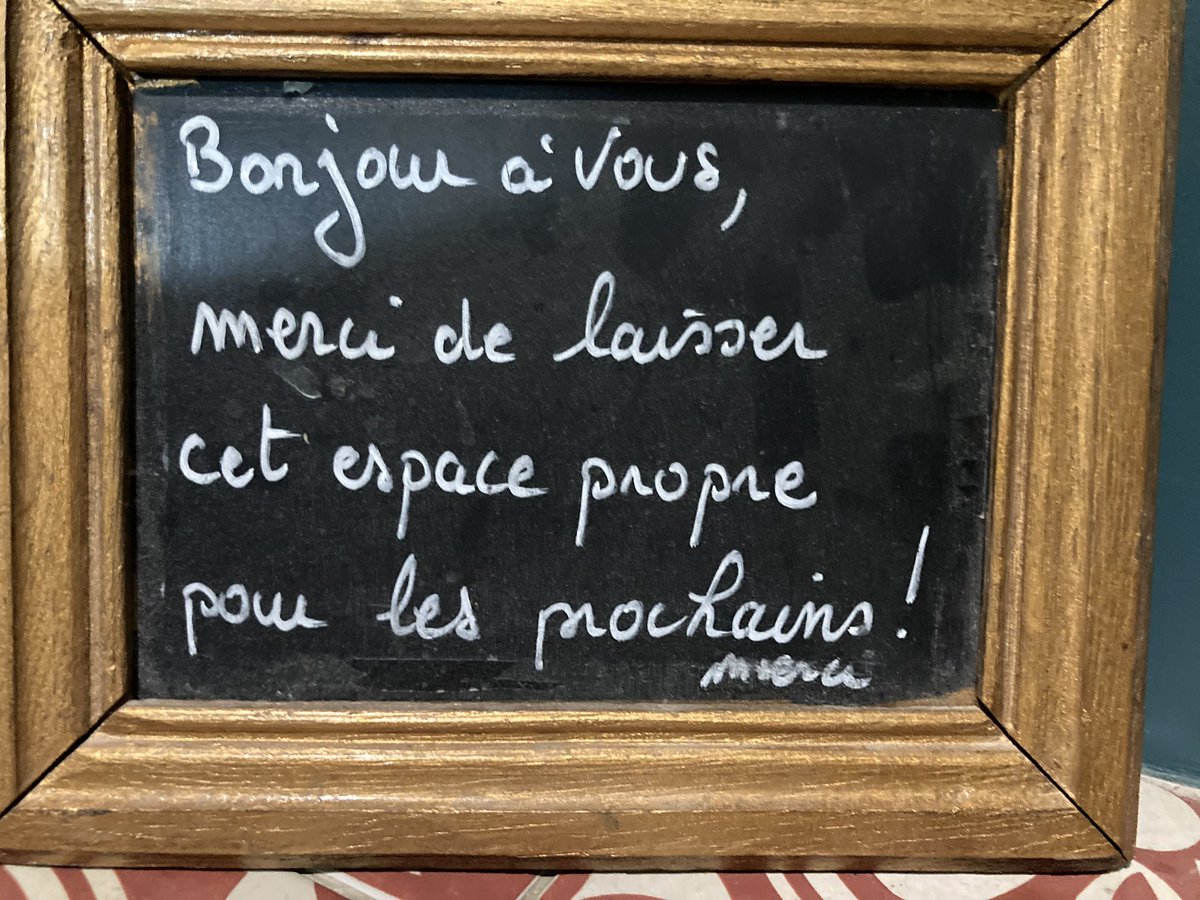 Bonjour à vous,
merci de laisser
cet espace propre
pour les prochains !
merci